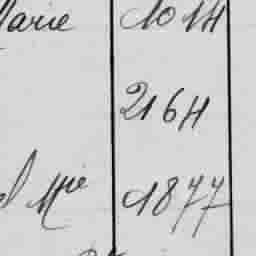 Marie 1014
2164
l Mie 1877